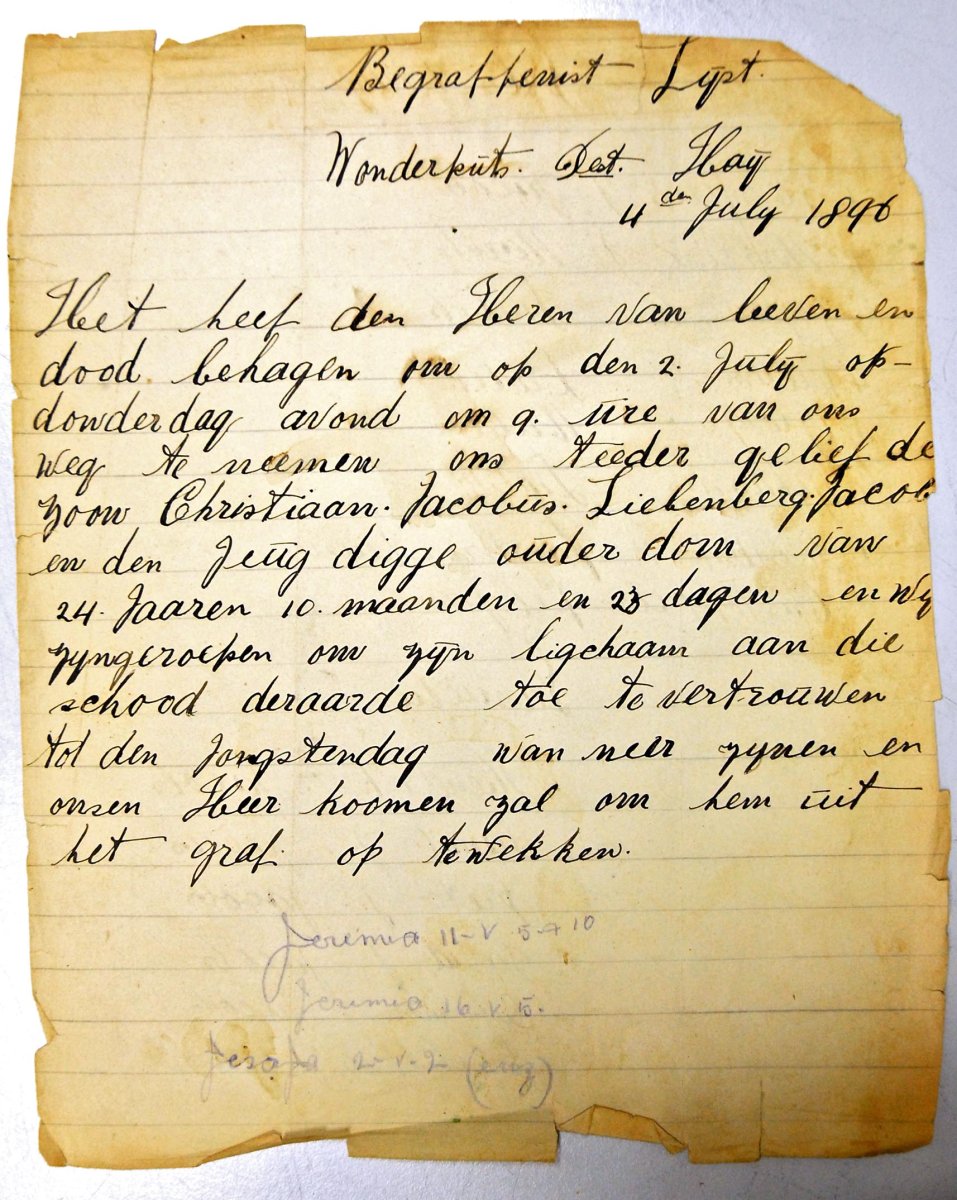 Begraffenist Lÿst.
Wonderpüts. Dest. Haÿ
4den July 1896
Het heef den Heren van leeven en
dood behagen om op den 2. Jülÿ op-
dowderdag avond om 9. üre van ons
weg te neemen ons teeder gelief de
zoon Christiaan. Jacobüs. Liebenberg. Jacob
en den Jeüg digge oüder dom van
24. Jaaren 10. maanden en 23 dagen en wÿ
zÿngeroepen om zÿn ligchaam aan die
schood deraarde toe te vertroüwen
tot den Jongstendag wan neer zÿnen en
onsen Heer koomen zal om hem üit
het graf op tewekken.
Jeremia 11-V 5-10
Jeremia 16 v 5.
Jesaja 2 v-2 (enz)